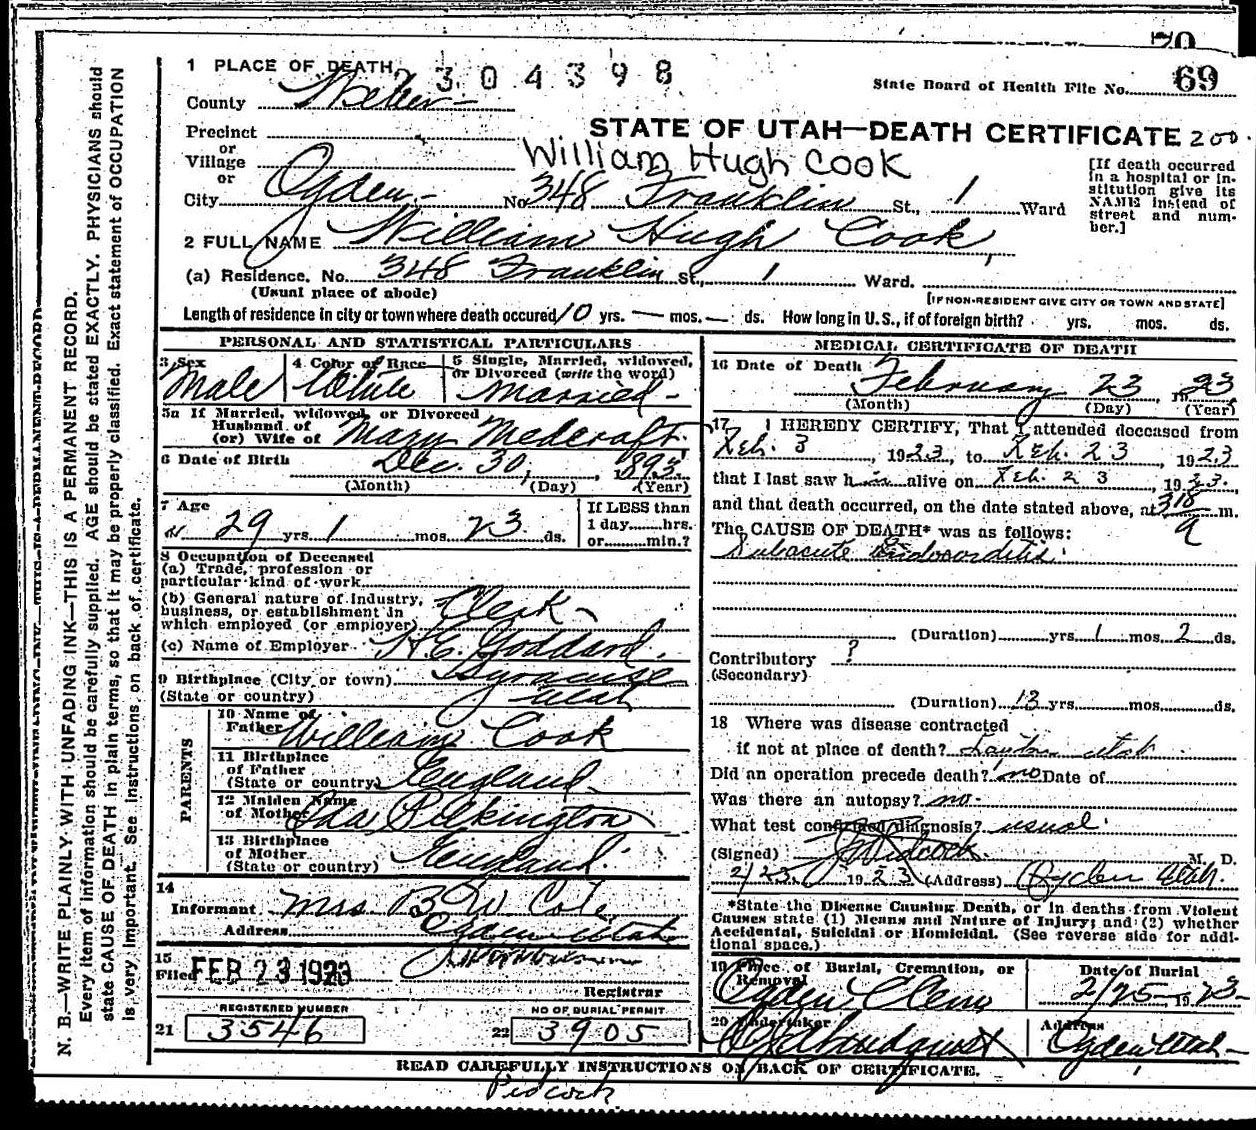 70
1 PLACE OF DEATH 2 3 0 4 3 9 8
State Board of Health File No. 69
County Weber
STATE OF UTAH—DEATH CERTIFICATE 200
Precinct
or
Village
William Hugh Cook
or
City Ogden No 348 Franklin St., 1 Ward
[If death occurred in a hospital or institution give its NAME instead of street and number.]
2 FULL NAME William Hugh Cook
(a) Residence. No. 348 Franklin St., 1 Ward.
(Usual place of abode)
[IF NON-RESIDENT GIVE CITY OR TOWN AND STATE]
Length of residence in city or town where death occured 10 yrs. — mos. — ds. How long in U.S., if of foreign birth? yrs. mos. ds.
PERSONAL AND STATISTICAL PARTICULARS
3 Sex
Male
4 Color or Race
White
5 Single, Married, widowed,
or Divorced (write the word)
Married
5a If Married, widowed or Divorced
Husband of
(or) Wife of Mary Medcraft
6 Date of Birth Dec. 30, 1893
(Month) (Day) (Year)
7 Age
29 yrs 1 mos 23 ds.
If LESS than
1 day hrs.
or min.?
8 Occupation of Deceased
(a) Trade, profession or
particular kind of work
(b) General nature of Industry,
business, or establishment in
which employed (or employer) Clerk
(c) Name of Employer H.C. Goddard.
9 Birthplace (City or town) Syracuse
(State or country) Utah
PARENTS
10 Name of
Father William Cook
11 Birthplace
of Father
(State or country) England
12 Maiden Name
of Mother Ida Pilkington
13 Birthplace
of Mother
(State or country) England.
14
Informant Mrs B W Cole
Address Ogden Utah
15
Filed FEB 23 1923
Registrar
REGISTERED NUMBER
21 3546
NO OF BURIAL PERMIT
22 3905
MEDICAL CERTIFICATE OF DEATH
16 Date of Death February 23, 1923
(Month) (Day) (Year)
17 I HEREBY CERTIFY, That I attended deceased from
Feb. 3, 1923, to Feb. 23, 1923
that I last saw him alive on Feb. 23, 1923.
and that death occurred, on the date stated above, at 318 a m.
The CAUSE OF DEATH* was as follows:
Subacute Endocarditis.
(Duration) yrs 1 mos 2 ds.
Contributory ?
(Secondary)
(Duration) 13 yrs. mos. ds.
18 Where was disease contracted
if not at place of death? Layton Utah
Did an operation precede death? no Date of
Was there an autopsy? no.
What test confirmed diagnosis? usual.
(Signed) Pidcock. M. D.
2/23 1923 (Address) Ogden Utah.
*State the Disease Causing Death, or in deaths from Violent
Causes state (1) Means and Nature of Injury; and (2) whether
Accidental, Suicidal or Homicidal. (See reverse side for addi-
tional space.)
19 Place of Burial, Cremation, or
Removal
Ogden Cem
Date of Burial
2/25 1923
20 Undertaker
Address
Ogden Utah
READ CAREFULLY INSTRUCTIONS ON BACK OF CERTIFICATE.
Pidcock
N. B.—WRITE PLAINLY WITH UNFADING INK—THIS IS A PERMANENT RECORD.
Every item of information should be carefully supplied. AGE should be stated EXACTLY. PHYSICIANS should
state CAUSE OF DEATH in plain terms, so that it may be properly classified. Exact statement of OCCUPATION
is very important. See instructions on back of certificate.